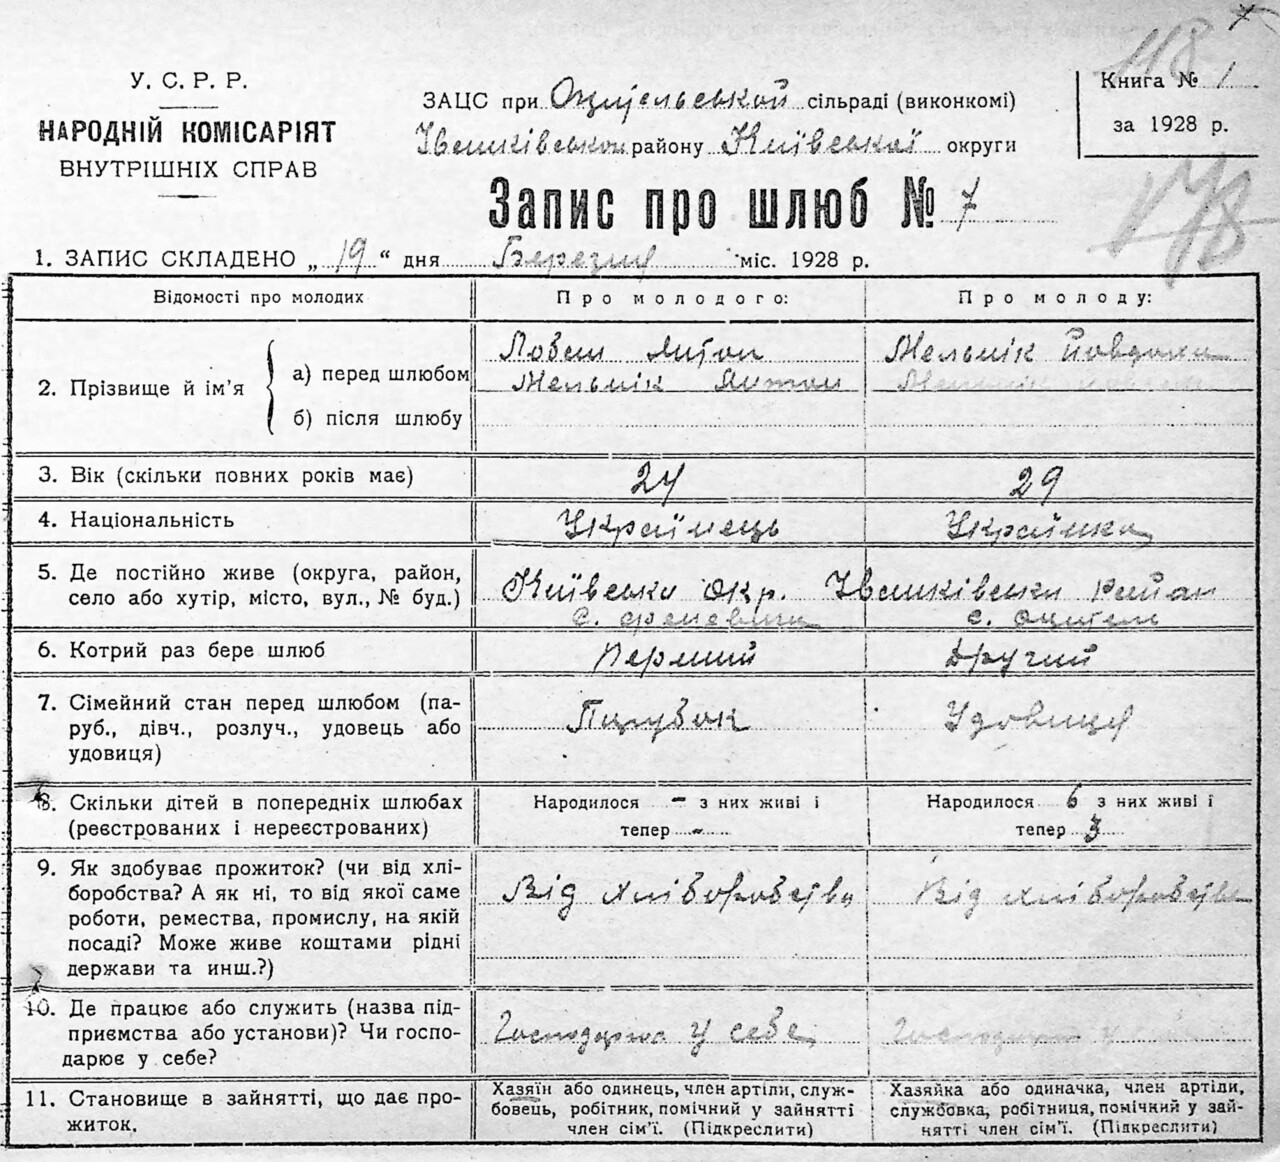 118
У. С. Р. Р.
НАРОДНІЙ КОМІСАРІЯТ
ВНУТРІШНІХ СПРАВ
ЗАЦС при Оцительській сільраді (виконкомі)
району Київської округи
Книга № 1
за 1928 р.
Запис про шлюб № 7
178
1. ЗАПИС СКЛАДЕНО „ 19 “ дня Березня міс. 1928 р.
Відомості про молодих
Про молодого:
Про молоду:
2. Прізвище й ім’я
а) перед шлюбом
б) після шлюбу
Антон
Мельнік Йовдоха
Мельнік Антон
Мельнік
3. Вік (скільки повних років має)
24
29
4. Національність
Українець
Українка
5. Де постійно живе (округа, район,
село або хутір, місто, вул., № буд.)
Київська Окр. Район
с. с. Оцитель
6. Котрий раз бере шлюб
Перший
Другий
7. Сімейний стан перед шлюбом (па-
руб., дівч., розлуч., удовець або
удовиця)
Парубок
Удовиця
8. Скільки дітей в попередніх шлюбах
(реєстрованих і нереєстрованих)
Народилося - з них живі і
тепер -
Народилося 6 з них живі і
тепер 3
9. Як здобуває прожиток? (чи від хлі-
боробства? А як ні, то від якої саме
роботи, ремества, промислу, на якій
посаді? Може живе коштами рідні
держави та инш.?)
Від хліборобства
Від хліборобства
10. Де працює або служить (назва під-
приємства або установи)? Чи госпо-
дарює у себе?
у себе
у
11. Становище в зайнятті, що дає про-
житок.
Хазяїн або одинець, член артіли, служ-
бовець, робітник, помічний у зайнятті
член сім’ї. (Підкреслити)
Хазяйка або одиначка, член артіли,
службовка, робітниця, помічний у зай-
нятті член сім’ї. (Підкреслити)